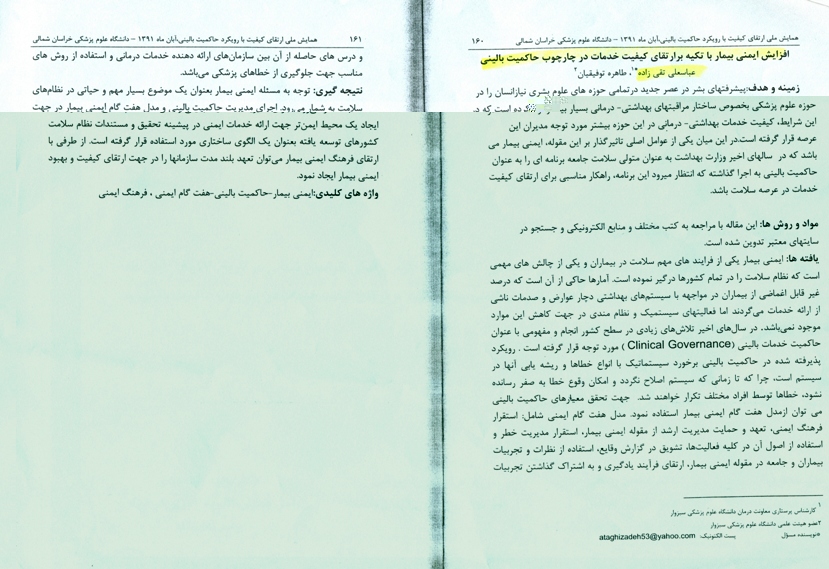 همایش ملی ارتقای کیفیت با رویکرد حاکمیت بالینی،آبان ماه ۱۳۹۱ – دانشگاه علوم پزشکی خراسان شمالی ۱۶۰
افزایش ایمنی بیمار با تکیه برارتقای کیفیت خدمات در چارچوب حاکمیت بالینی
عباسعلی تقی زاده۱*، طاهره توفیقیان۲
زمینه و هدف:پیشرفتهای بشر در عصر جدید درتمامی حوزه های علوم بشری نیازانسان را در
حوزه علوم پزشکی بخصوص ساختار مراقبتهای بهداشتی- درمانی بسیار بیشتر کرده است که در
این شرایط، کیفیت خدمات بهداشتی- درمانی در این حوزه بیشتر مورد توجه مدیران این
عرصه قرار گرفته است.در این میان یکی از عوامل اصلی تاثیرگذار بر این مقوله، ایمنی بیمار می
باشد که در سالهای اخیر وزارت بهداشت به عنوان متولی سلامت جامعه برنامه ای را به عنوان
حاکمیت بالینی به اجرا گذاشته که انتظار میرود این برنامه، راهکار مناسبی برای ارتقای کیفیت
خدمات در عرصه سلامت باشد.
مواد و روش ها: این مقاله با مراجعه به کتب مختلف و منابع الکترونیکی و جستجو در
سایتهای معتبر تدوین شده است.
یافته ها: ایمنی بیمار یکی از فرایند های مهم سلامت در بیماران و یکی از چالش های مهمی
است که نظام سلامت را در تمام کشورها درگیر نموده است. آمارها حاکی از آن است که درصد
غیر قابل اغماضی از بیماران در مواجهه با سیستم‌های بهداشتی دچار عوارض و صدمات ناشی
از ارائه خدمات می‌گردند اما فعالیتهای سیستمیک و نظام مندی در جهت کاهش این موارد
موجود نمی‌باشد، در سال‌های اخیر تلاش‌های زیادی در سطح کشور انجام و مفهومی با عنوان
حاکمیت خدمات بالینی (Clinical Governance ) مورد توجه قرار گرفته است . رویکرد
پذیرفته شده در حاکمیت بالینی برخورد سیستماتیک با انواع خطاها و ریشه یابی آنها در
سیستم است، چرا که تا زمانی که سیستم اصلاح نگردد و امکان وقوع خطا به صفر رسانده
نشود، خطاها توسط افراد مختلف تکرار خواهند شد. جهت تحقق معیارهای حاکمیت بالینی
می توان ازمدل هفت گام ایمنی بیمار استفاده نمود. مدل هفت گام ایمنی شامل: استقرار
فرهنگ ایمنی، تعهد و حمایت مدیریت ارشد از مقوله ایمنی بیمار، استقرار مدیریت خطر و
استفاده از اصول آن در کلیه فعالیت‌ها، تشویق در گزارش وقایع، استفاده از نظرات و تجربیات
بیماران و جامعه در مقوله ایمنی بیمار، ارتقای فرآیند یادگیری و به اشتراک گذاشتن تجربیات
۱ کارشناس پرستاری معاونت درمان دانشگاه علوم پزشکی سبزوار
۲عضو هیئت علمی دانشگاه علوم پزشکی سبزوار
*نویسنده مسؤل پست الکترونیک: ataghizadeh53@yahoo.com
همایش ملی ارتقای کیفیت با رویکرد حاکمیت بالینی،آبان ماه ۱۳۹۱ – دانشگاه علوم پزشکی خراسان شمالی ۱۶۱
و درس های حاصله از آن بین سازمان‌های ارائه دهنده خدمات درمانی و استفاده از روش های
مناسب جهت جلوگیری از خطاهای پزشکی می‌باشد.
نتیجه گیری: توجه به مسئله ایمنی بیمار بعنوان یک موضوع بسیار مهم و حیاتی در نظام‌های
سلامت به شمار می رود. اجرای مدیریت حاکمیت بالینی و مدل هفت گام ایمنی بیمار در جهت
ایجاد یک محیط ایمن‌تر جهت ارائه خدمات ایمنی در پیشینه تحقیق و مستندات نظام سلامت
کشورهای توسعه یافته بعنوان یک الگوی ساختاری مورد استفاده قرار گرفته است. از طرفی با
ارتقای فرهنگ ایمنی بیمار می‌توان تعهد بلند مدت سازمانها را در جهت ارتقای کیفیت و بهبود
ایمنی بیمار ایجاد نمود.
واژه های کلیدی:ایمنی بیمار-حاکمیت بالینی-هفت گام ایمنی ، فرهنگ ایمنی